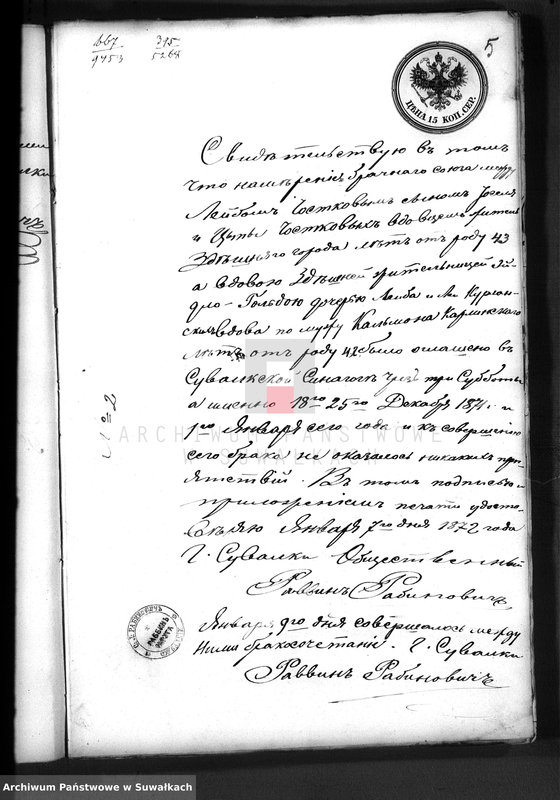 667
9753
315
5264
5
ЦѢНА 15 КОП. СЕР.
Свидѣтельствую въ томъ
что намѣреніе брачнаго союза между
Лейбомъ Гостковымъ сыномъ
и Цыпы Гостковыхъ вдовцемъ жителемъ
здѣшняго города лѣтъ отъ роду 43
а вдовою здѣшней жительницей
Гольдою дочерью Лейба и Леи
вдова по мужу Кальмона Карлинскаго
лѣтъ отъ роду 42 было оглашено въ
Сувалкской Синагогѣ чрезъ три Субботы
а именно 18го 25го Декабря 1871 г. и
1го Января сего года и къ совершенію
сего брака не оказалось никакихъ пре-
пятствій. Въ томъ подписью и
приложеніемъ печати удосто-
вѣряю Января 7го дня 1872 года
Г. Сувалки Общественный
Раввинъ Рабиновичъ
№ 2
Января 9го дня совершалось между
ними бракосочетаніе. Г. Сувалки
Раввинъ Рабиновичъ
ARCHIWUM PAŃSTWOWE
W SUWAŁKACH
Archiwum Państwowe w Suwałkach